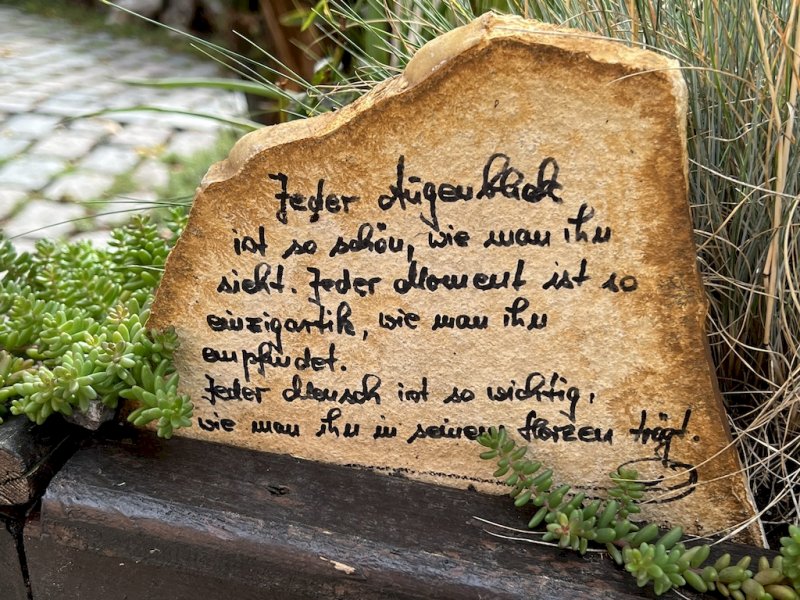 Jeder Augenblick
ist so schön, wie man ihn
sieht. Jeder Moment ist so
einzigartik, wie man ihn
empfindet.
Jeder Mensch ist so wichtig,
wie man ihn in seinem Herzen trägt.